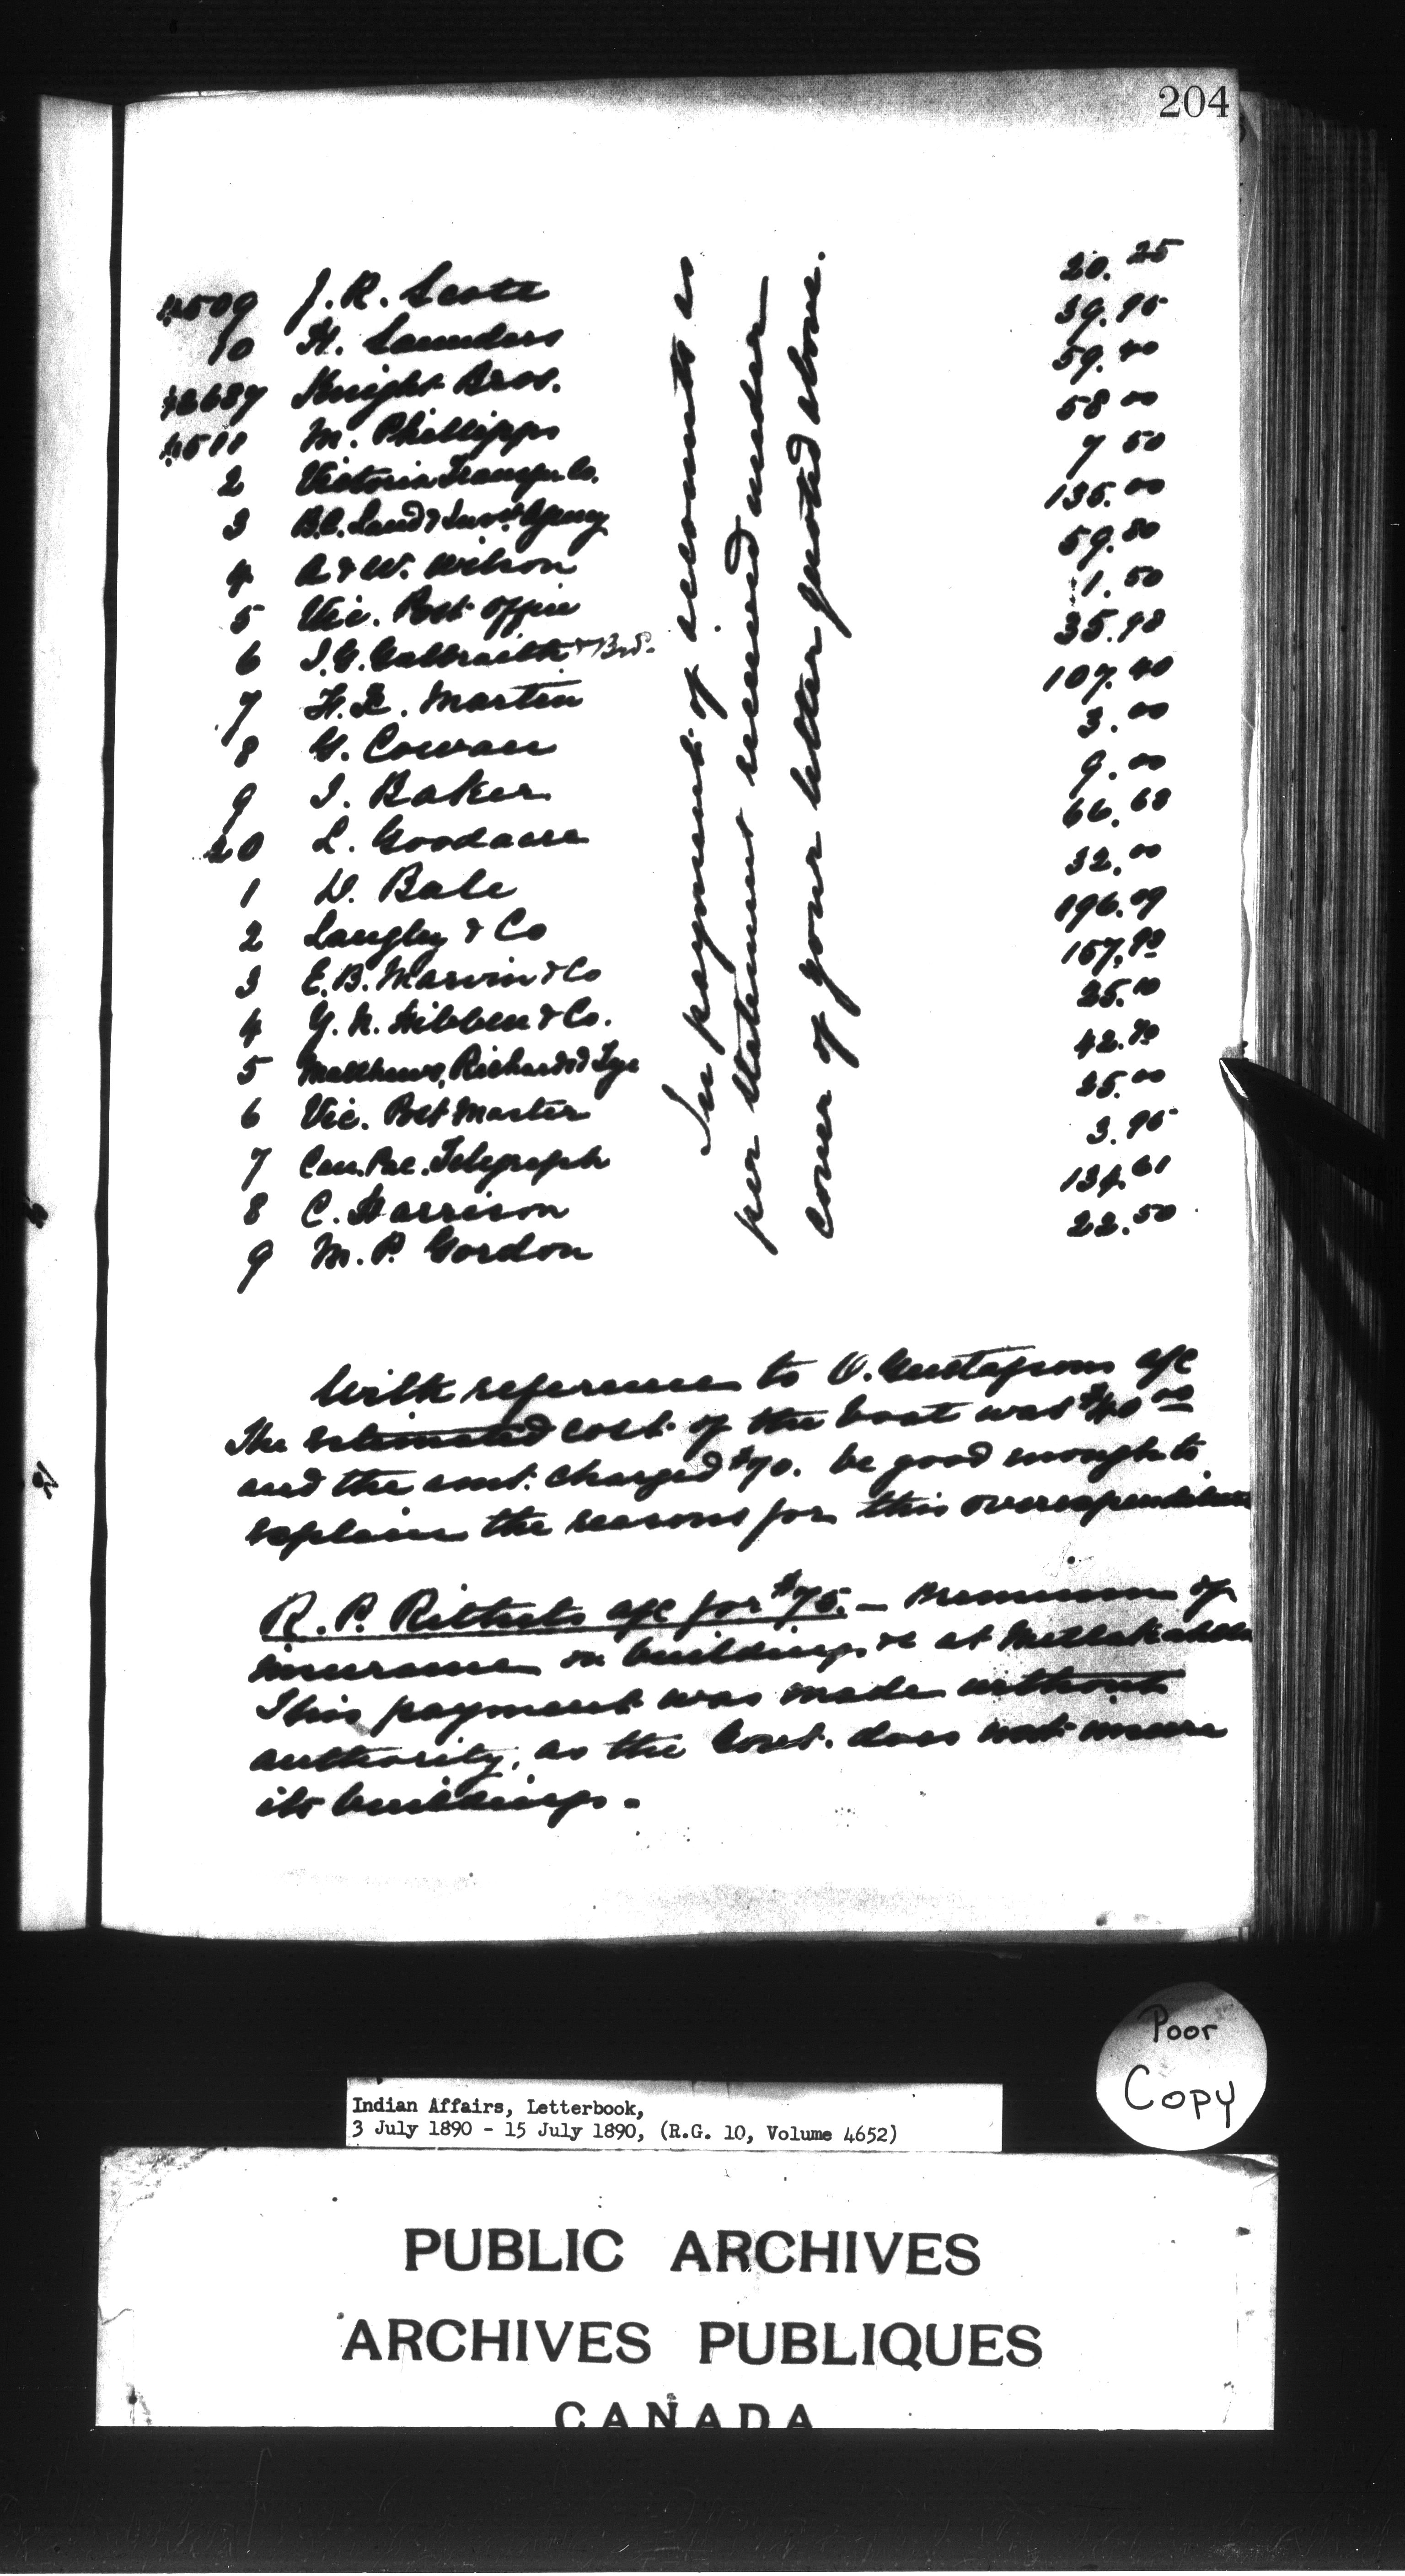 204
4509 J. R. Scott 20.25
10 H. Saunders 39.95
Knight Bros. 59.40
4511 M. Phillipps 58 00
2 Victoria Transfer Co. 7 50
3 B.C. Land & Invst Agency 135.00
4 A & W. Wilson 59.80
5 Vic. Post Office 1.50
6 J. G. Galbraith & Bro. 35.98
7 H. E. Martin 107.40
8 G. Cowan 3.00
9 I. Baker 9.00
20 L. Goodacre 66.68
1 W. Bale 32.00
2 Langley & Co 196.09
3 E. B. Marvin & Co
4 T. N. Hibben & Co. 25.10
5 Matthews, Richards & Tye
6 Vic. Post Master 25.00
7 Can. Pac. Telegraph 3.95
8 C. Harrison 134.61
9 M. P. Gordon 22.50
In payment of accounts as
per statement received under
cover of your letter quoted above.
With reference to O. Gustafson a/c
The estimated cost of the boat was $40 00
and the amt. charged $70. be good enough to
explain the reasons for this overexpenditure
R. P. Rithets a/c for $75. — Premium of
insurance on buildings &c at Metlakahtla
This payment was made without
authority, as the Govt. does not insure
its buildings.
Poor
Copy
Indian Affairs, Letterbook,
3 July 1890 - 15 July 1890, (R.G. 10, Volume 4652)
PUBLIC ARCHIVES
ARCHIVES PUBLIQUES
CANADA